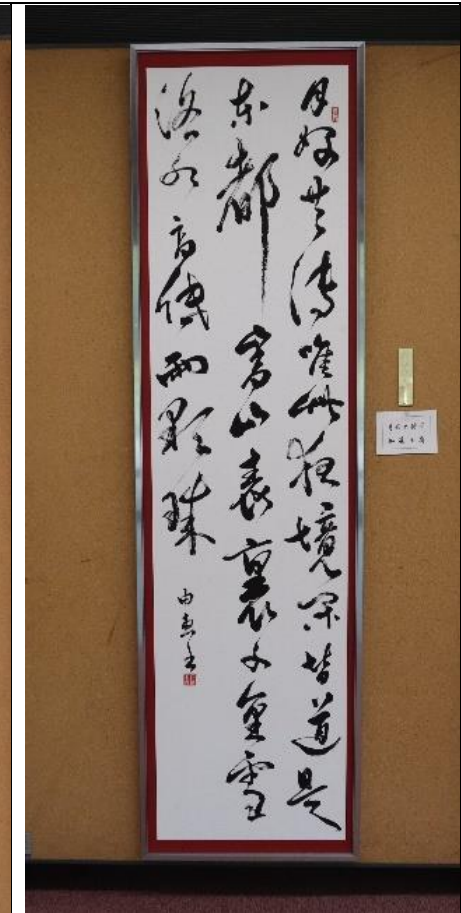 月好共傳唯此夜境閑皆道是
東都嵩山表裏千重雪
洛水高低兩顆珠